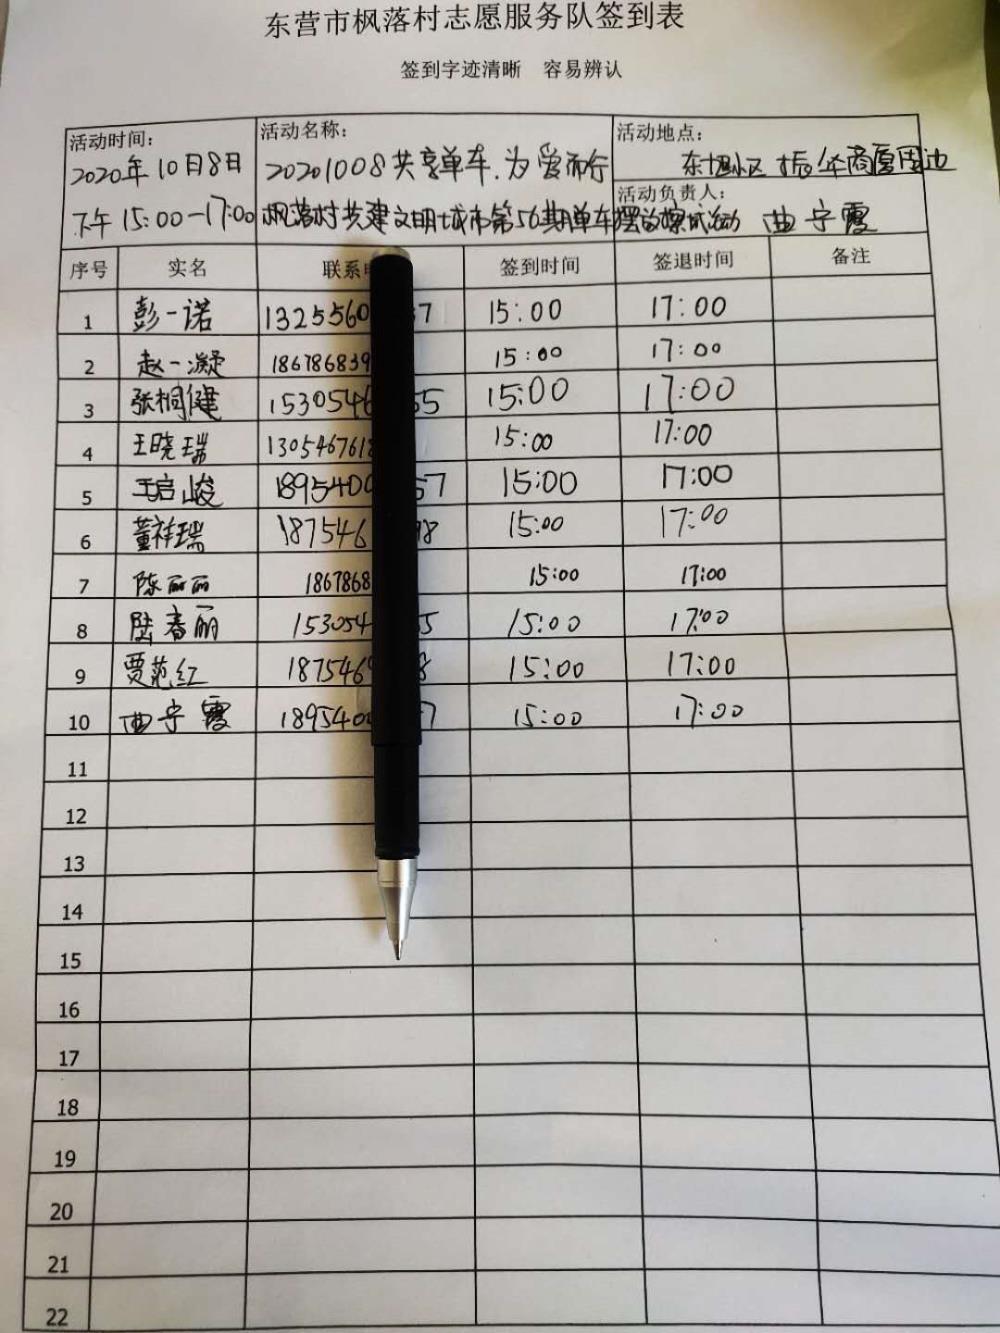 东营市枫落村志愿服务队签到表
签到字迹清晰 容易辨认
活动时间： 活动名称： 活动地点：
2020年10月8日 20201008共享单车.为爱而行 东旭小区 振华商厦周边
活动负责人：
下午15:00-17:00 枫落村共建文明城市第56期单车摆放擦拭活动 曲宁霞
序号 实名 联系 签到时间 签退时间 备注
1 彭一诺 13255607 15:00 17:00
2 赵一凝 186786839 15:00 17:00
3 张桐健 153054655 15:00 17:00
4 王晓瑞 130546761 15:00 17:00
5 王启峻 189540057 15:00 17:00
6 董祥瑞 18754698 15:00 17:00
7 陈丽丽 1867868 15:00 17:00
8 陆春丽 1530545 15:00 17:00
9 贾范红 1875468 15:00 17:00
10 曲宁霞 18954007 15:00 17:00
11
12
13
14
15
16
17
18
19
20
21
22